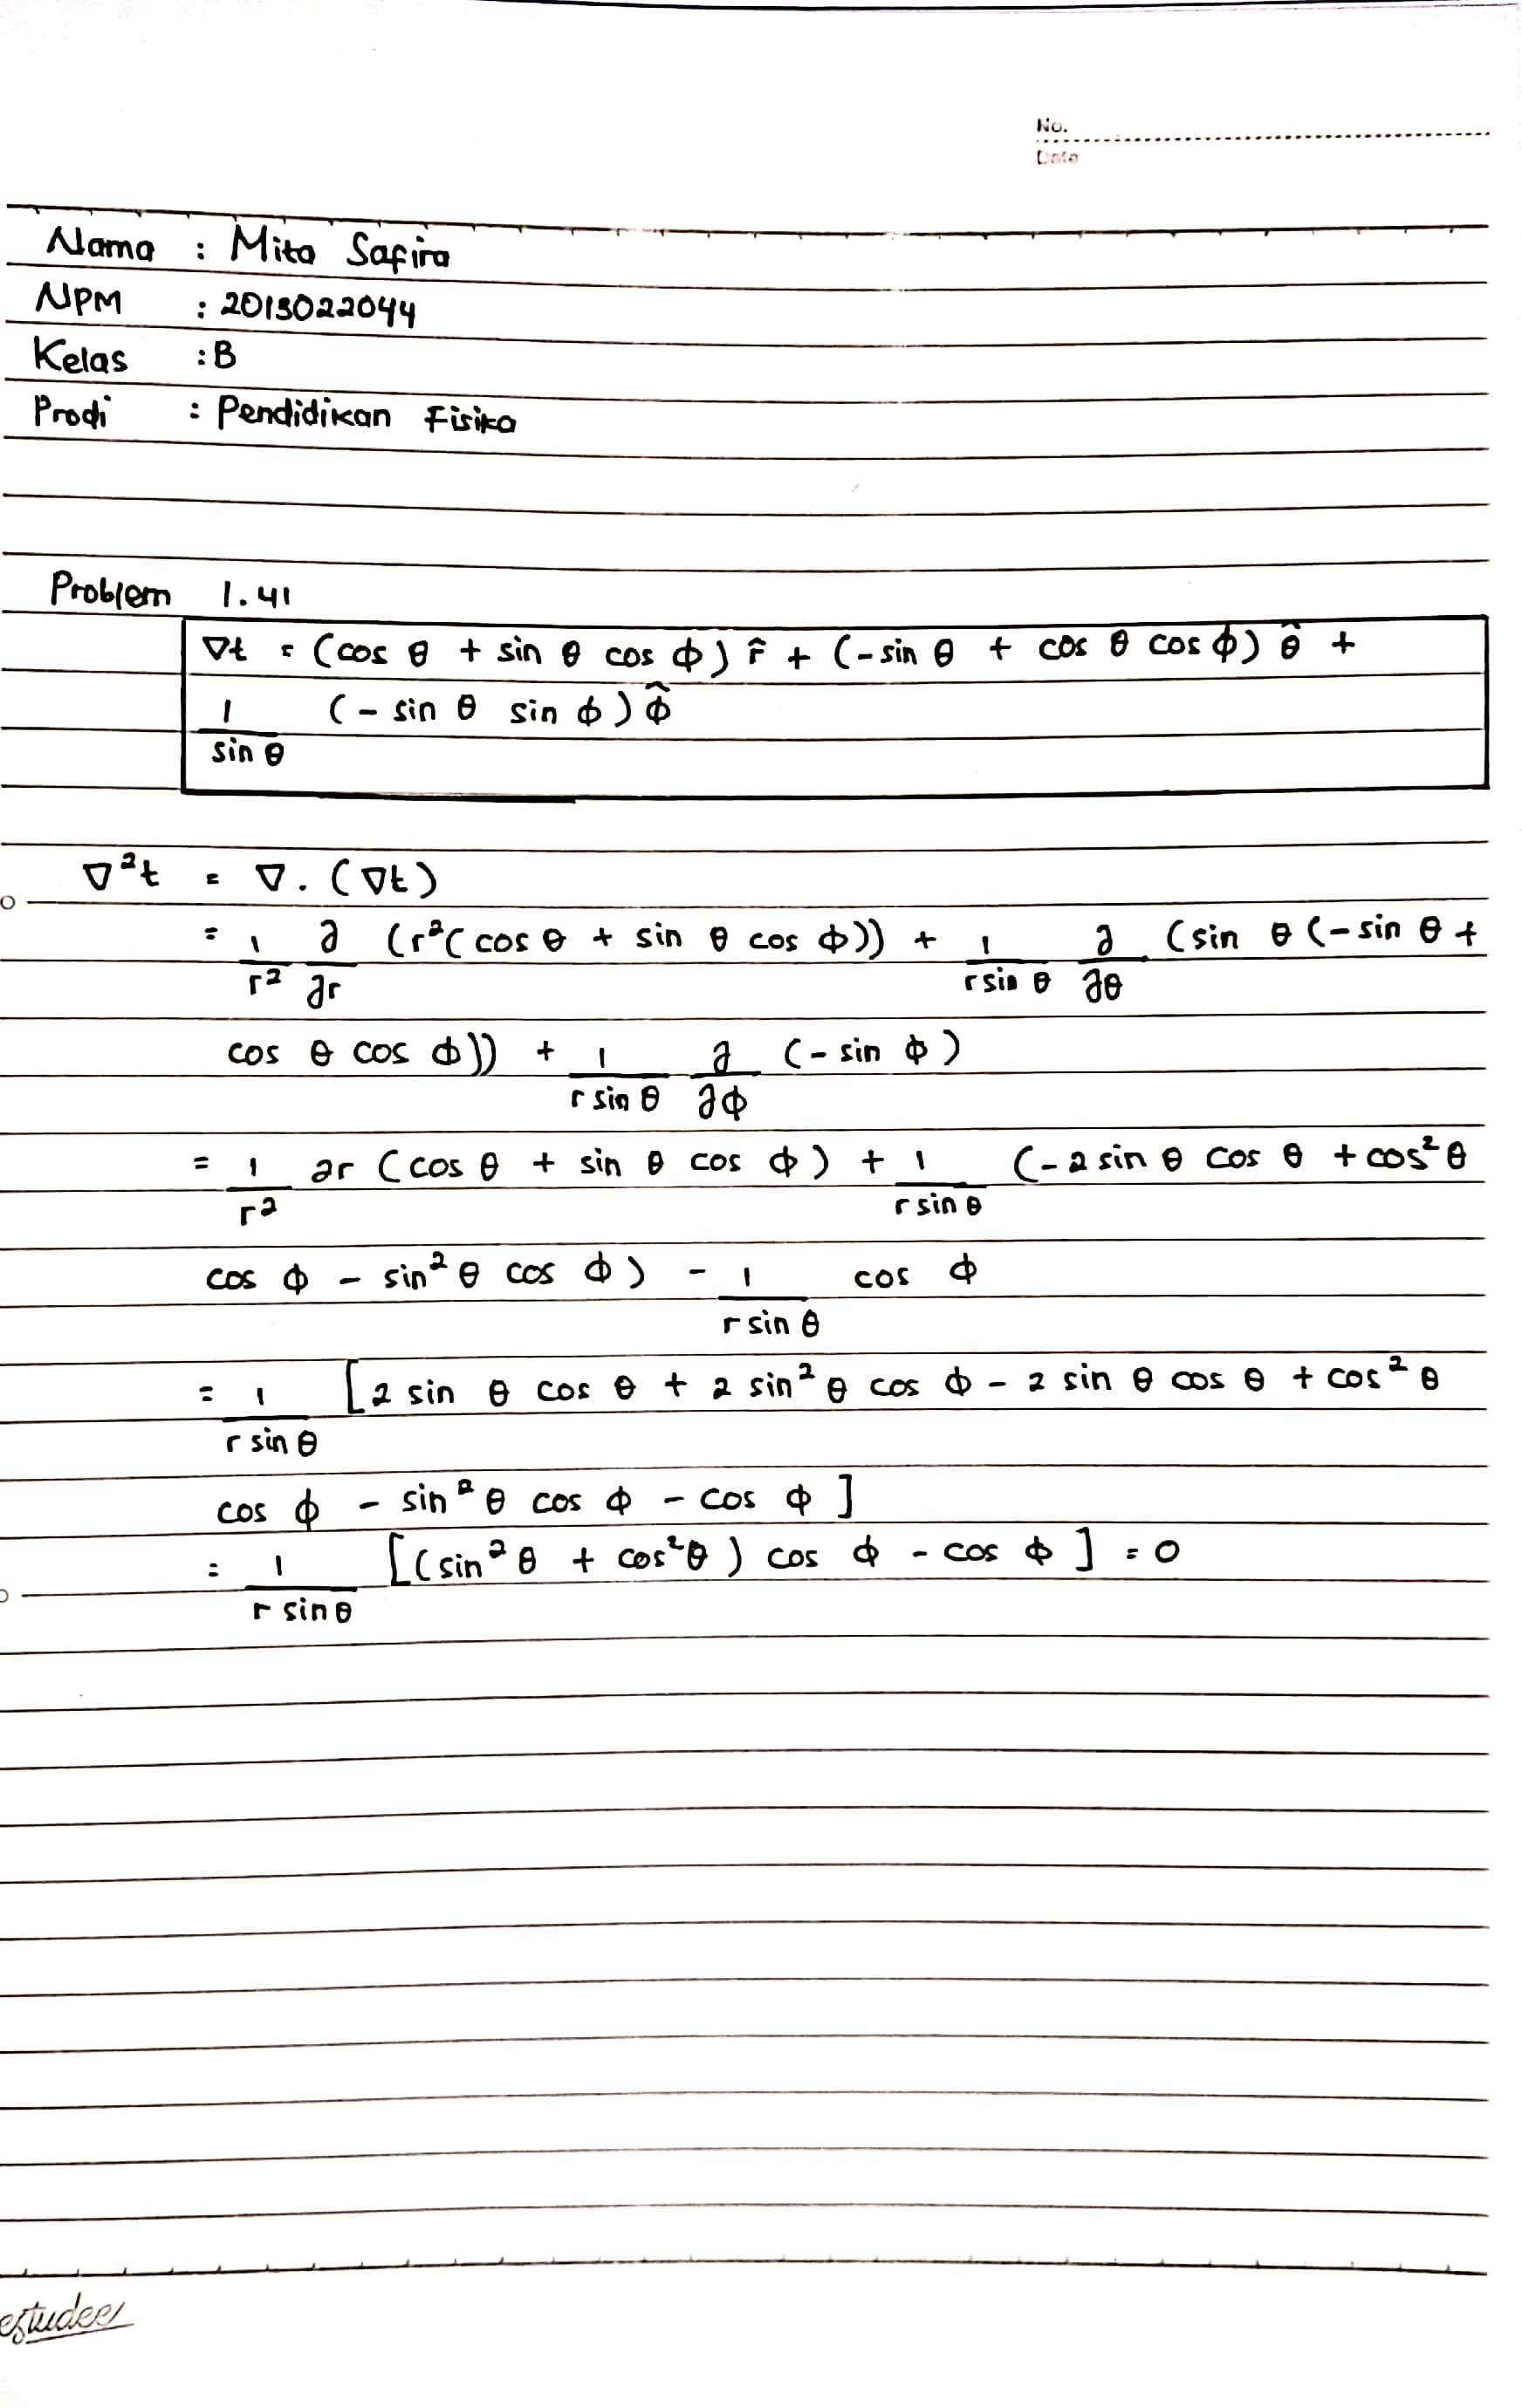 No.
Date
Nama : Mita Safira
NPM : 2013022044
Kelas : B
Prodi : Pendidikan Fisika
Problem 1.41
∇t = (cos θ + sin θ cos ϕ) r̂ + (-sin θ + cos θ cos ϕ) θ̂ +
1/sin θ (- sin θ sin ϕ) ϕ̂
∇²t = ∇. (∇t)
= 1/r² ∂/∂r (r²(cos θ + sin θ cos ϕ)) + 1/r sin θ ∂/∂θ (sin θ (-sin θ +
cos θ cos ϕ)) + 1/r sin θ ∂/∂ϕ (- sin ϕ)
= 1/r² 2r (cos θ + sin θ cos ϕ) + 1/r sin θ (-2 sin θ cos θ + cos² θ
cos ϕ - sin² θ cos ϕ) - 1/r sin θ cos ϕ
= 1/r sin θ [2 sin θ cos θ + 2 sin² θ cos ϕ - 2 sin θ cos θ + cos² θ
cos ϕ - sin² θ cos ϕ - cos ϕ ]
= 1/r sin θ [(sin² θ + cos² θ) cos ϕ - cos ϕ ] = 0
estudee